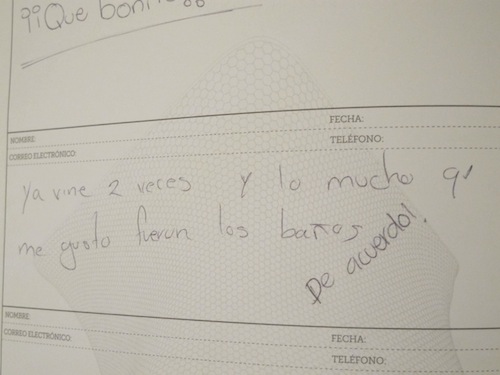 ¡¡Que boni
NOMBRE:
FECHA:
CORREO ELECTRÓNICO:
TELÉFONO:
ya vine 2 veces y lo mucho q'
me gusto fueron los baños
De acuerdo!
NOMBRE:
FECHA:
CORREO ELECTRÓNICO:
TELÉFONO: